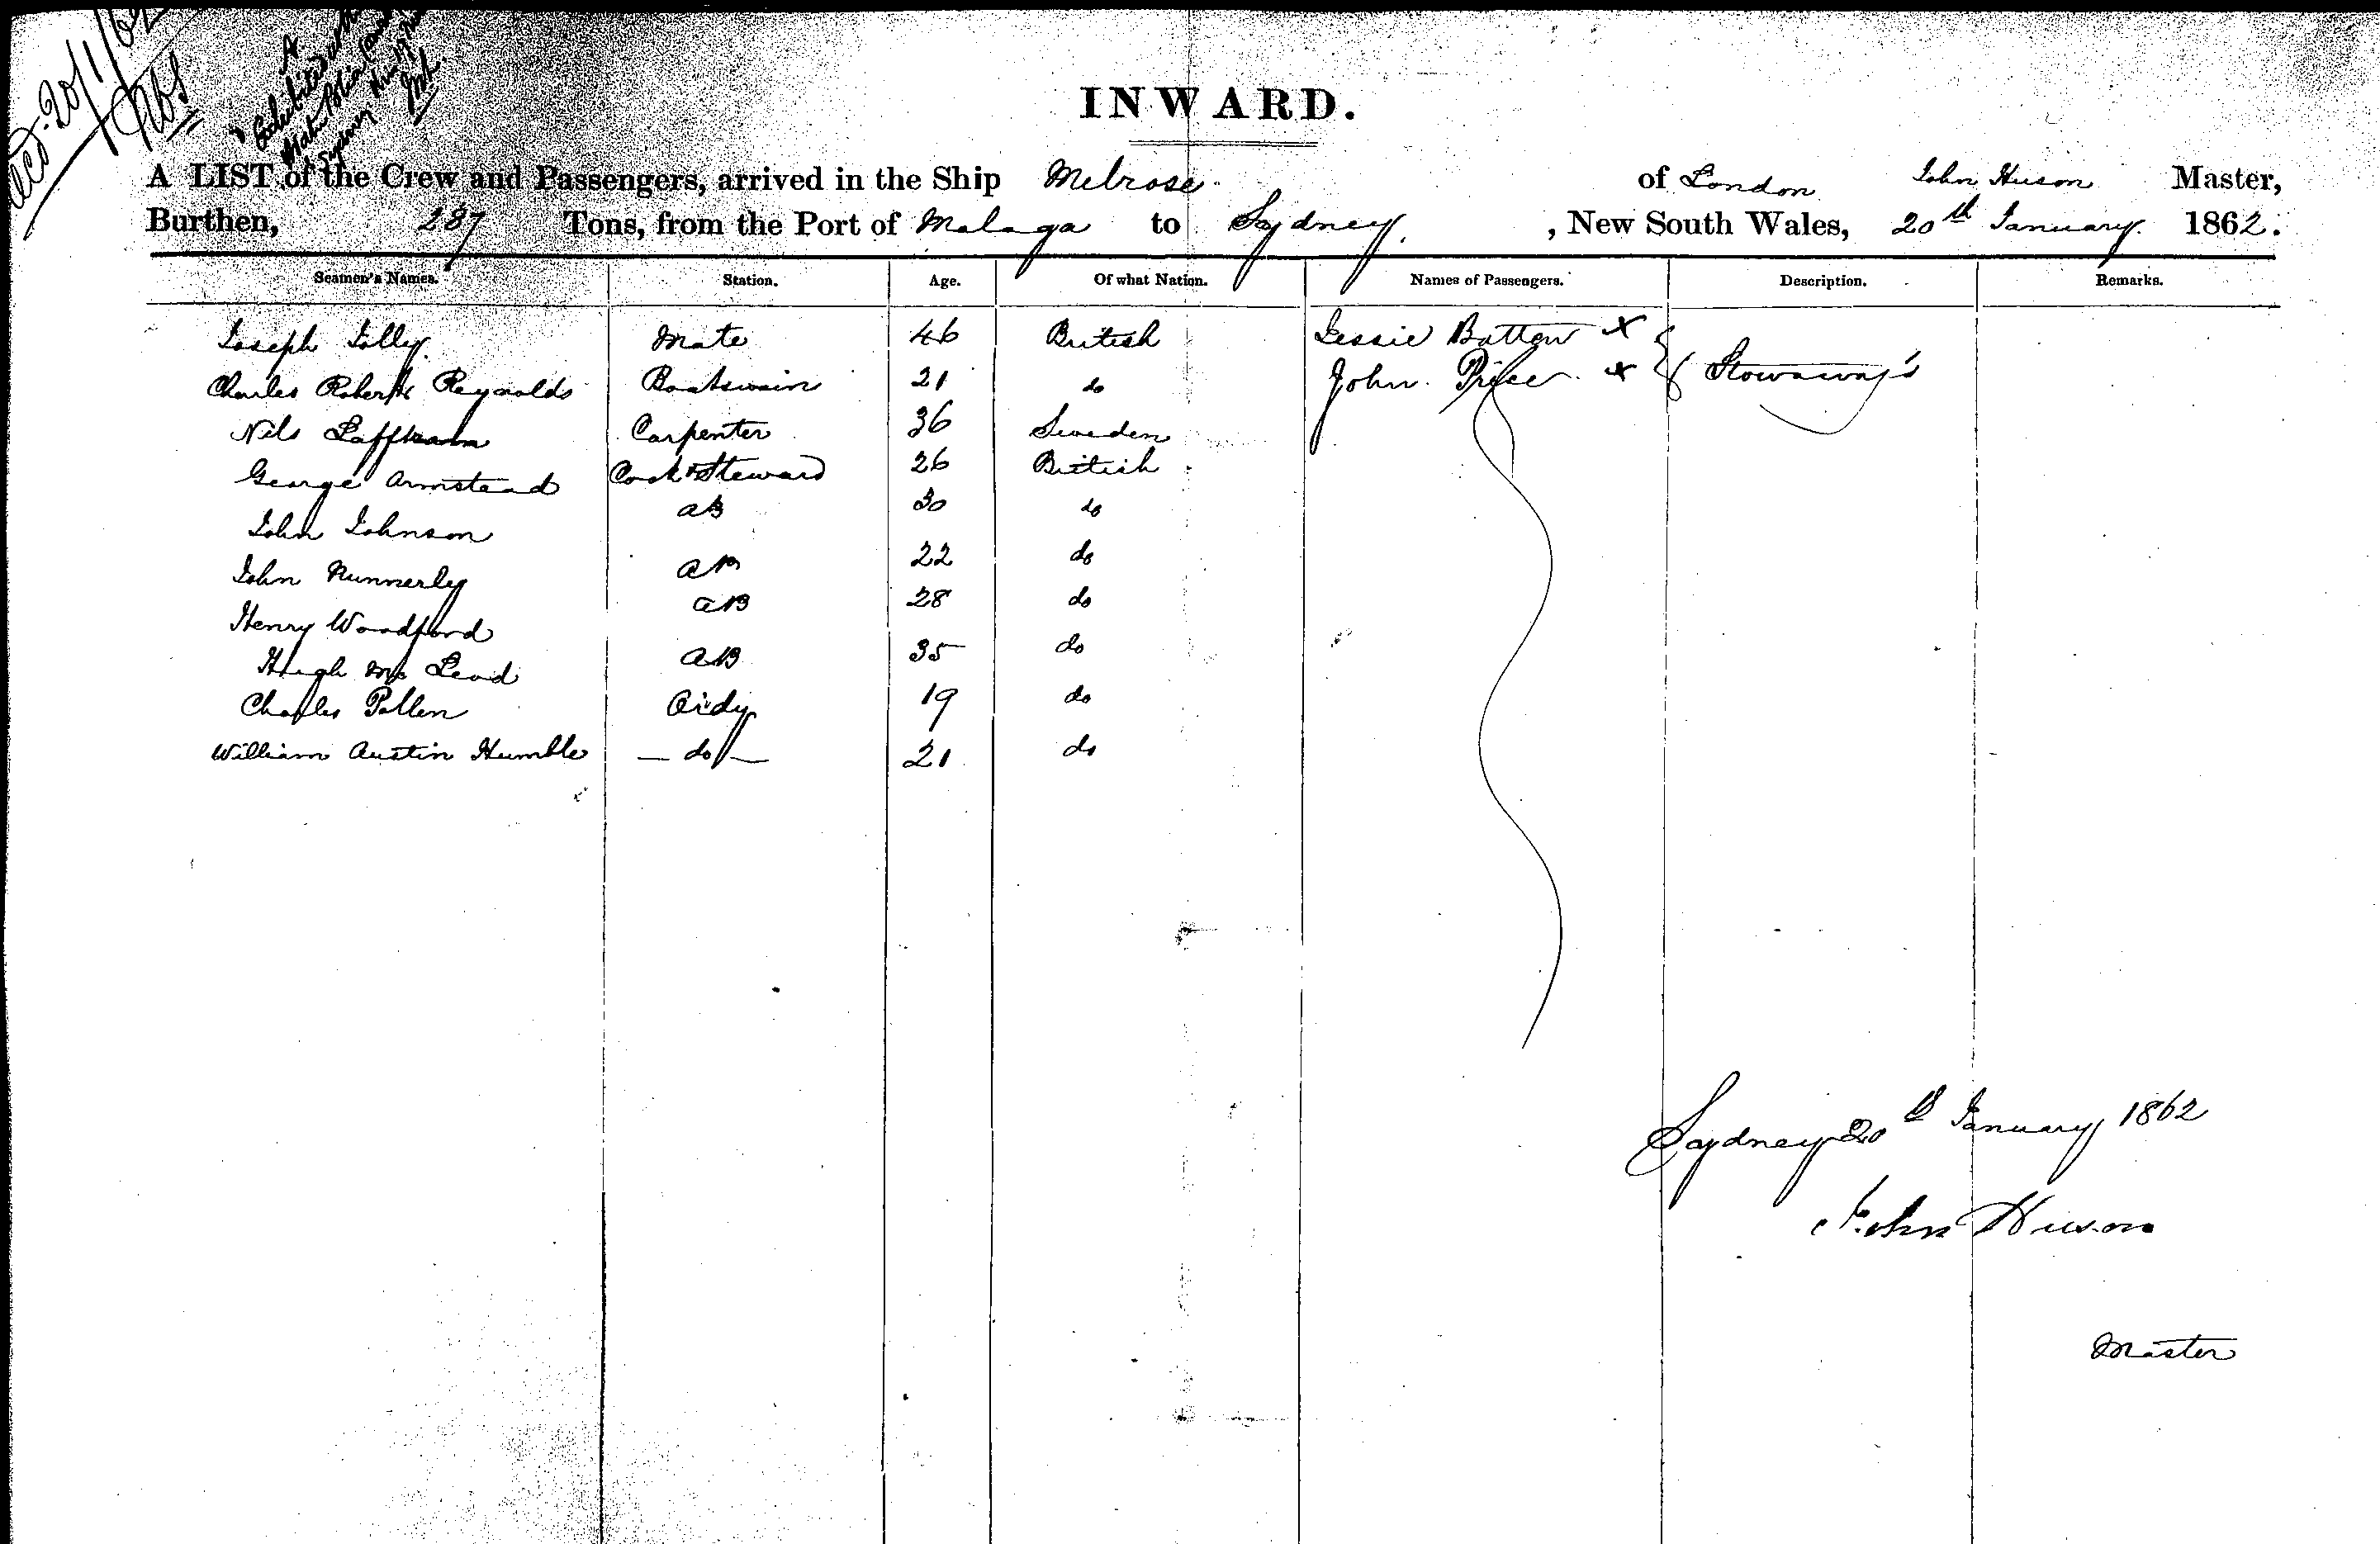 Recd. 20/1/62
A
Exhibited at the
Water Police
Sydney
INWARD.
A LIST of the Crew and Passengers, arrived in the Ship Melrose of London John Huson Master,
Burthen, 287 Tons, from the Port of Malaga to Sydney, New South Wales, 20th January 1862.
Seamen's Names. Station. Age. Of what Nation. Names of Passengers. Description. Remarks.
Joseph Jolley Mate 46 British Jessie Batten x
Charles Roberts Reynolds Boatswain 21 do John Price x { Stowaway's
Nils Carpenter 36 Sweden
George Armstead Cook & Steward 26 British
John Johnson AB 30 do
John Nunnerly AB 22 do
Henry Woodford AB 28 do
Hugh Mc Leod AB 35 do
Charles Pollen Ordy 19 do
William Austin Humble — do — 21 do
Sydney 20th January 1862
John Huson
Master